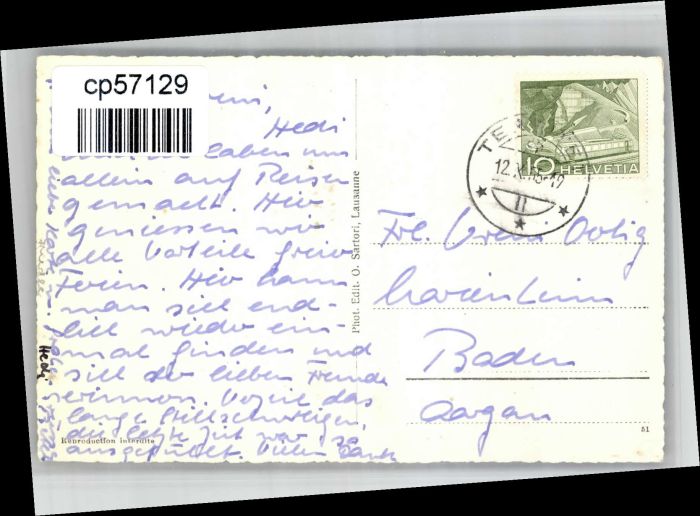 cp57129
Hedi
haben uns
allein auf Reisen
gemacht. Hier
geniessen wir
alle Vorteile freier
Ferien. Hier kann
man sich end-
lich wieder ein-
mal finden und
sich der lieben Freunde
erinnern. Verzeih das
lange Stillschweigen,
die letzte Zeit war so
ausgefüllt. Vielen Dank
Hedi
Reproduction interdite
Phot. Edit. O. Sartori, Lausanne
10 HELVETIA
12.X
Frl. Vreni
Baden
Aargau
51